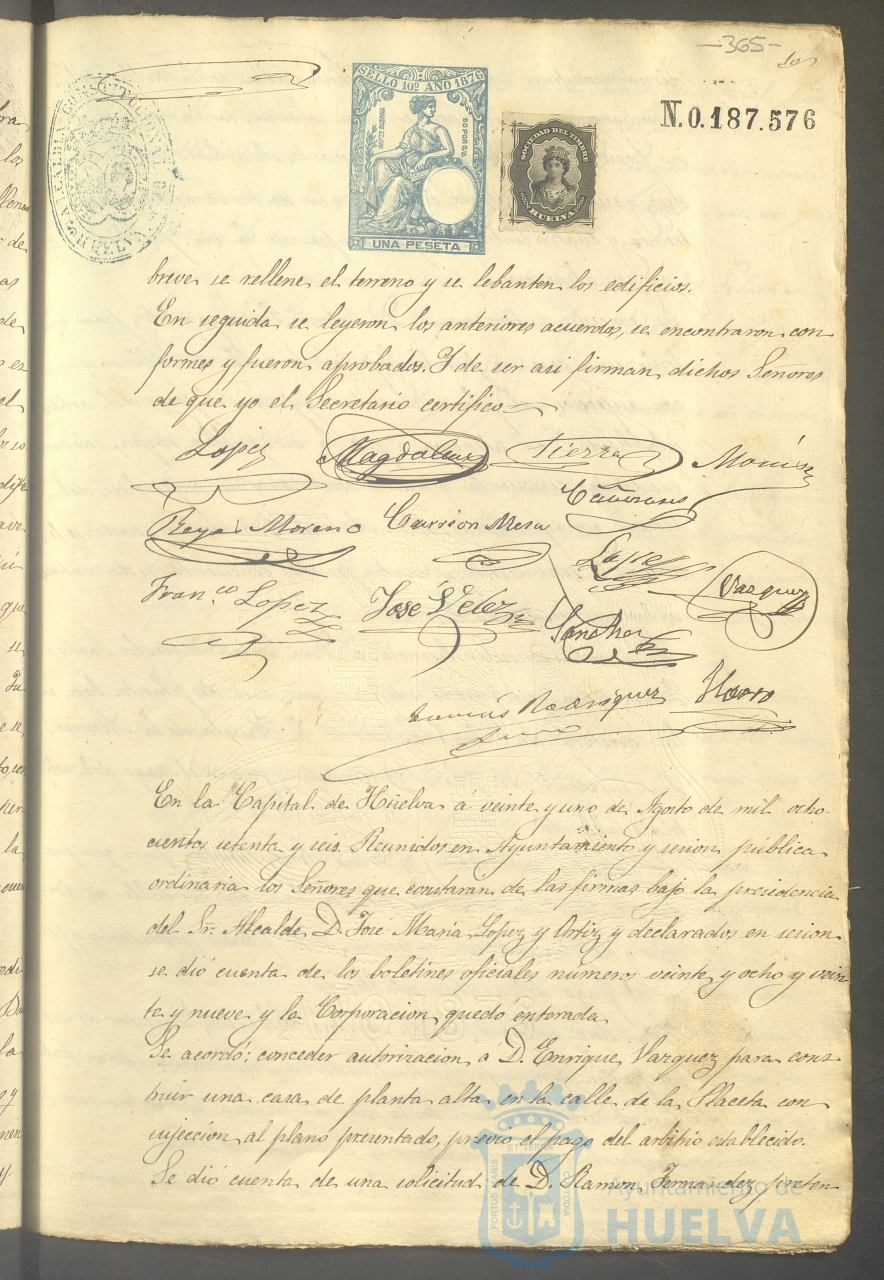 -365-
N.0.187.576
ALCALDIA CONSTITUCIONAL
HUELVA
SELLO 10º AÑO 1876
UNA PESETA
SOCIEDAD DEL TIMBRE
HUELVA
breve se rellene el terreno y se lebanten los edificios.
En seguida se leyeron los anteriores acuerdos, se encontraron con
formes y fueron aprobados. Y de ser asi firman dichos Señores
de que yo el Secretario certifico
Lopez Magdalena Tierra
Reyes Moreno Carrion Mesa Cañizares
Lopez Vazquez
Fran.co Lopez José Velez Sanchez
Rodriguez Haro
En la Capital de Huelva á veinte y uno de Agosto de mil ocho-
cientos setenta y seis. Reunidos en Ayuntamiento y sesion pública
ordinaria los Señores que constaran de las firmas bajo la presidencia
del Sr. Alcalde D. José Maria Lopez y Ortiz y declarados en sesion
se dió cuenta de los boletines oficiales números veinte y ocho y vein
te y nueve y la Corporacion quedó enterada
Se acordó: conceder autorizacion á D. Enrique Vazquez para cons-
truir una casa de planta alta en la calle de la Placeta con
sujeccion al plano presentado, previo el pago del arbitrio establecido.
Se dió cuenta de una solicitud de D. Ramon Fernandez preten
PORTUS MARIS ET TERRAE CUSTODIA
Ayuntamiento de
HUELVA